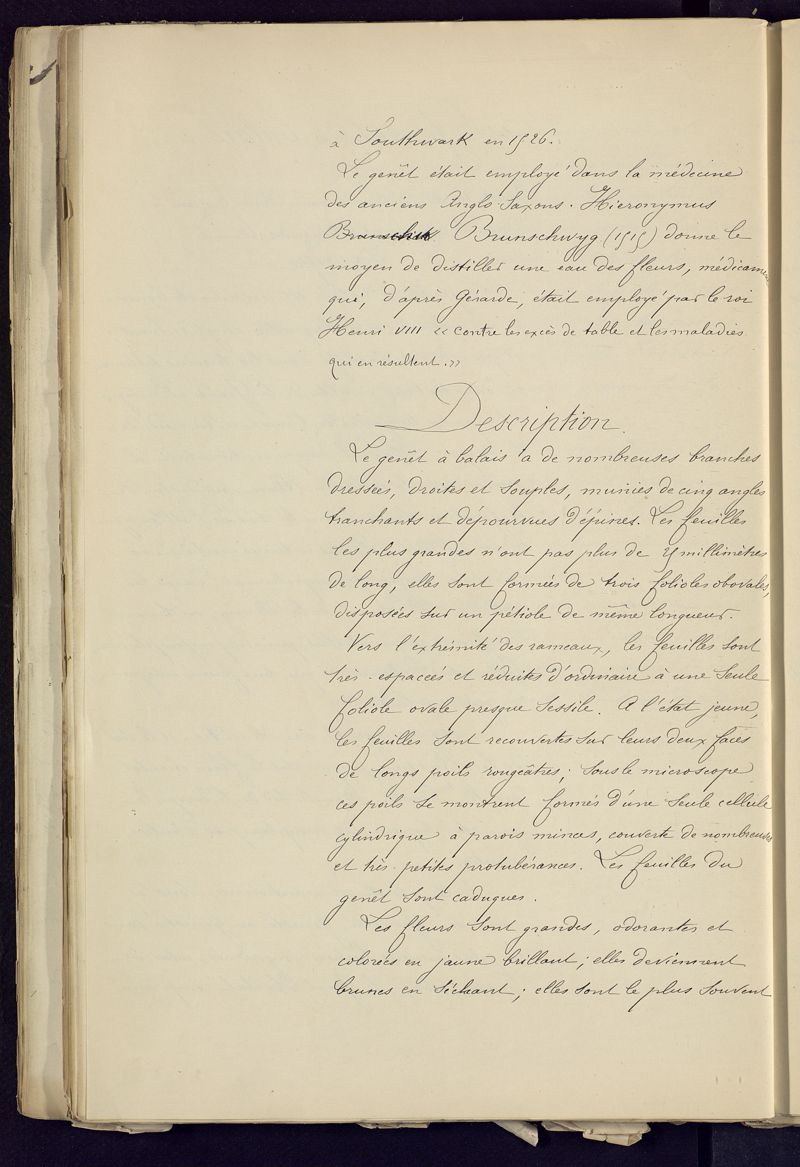 à Southwark en 1526.
Le genêt était employé dans la médecine
des anciens Anglo-Saxons. Hieronymus
Brunschwyg (1515) donne le
moyen de distiller une eau des fleurs, médicament
qui, d'après Gérarde, était employé par le roi
Henri VIII « contre les excès de table et les maladies
qui en résultent. »
Description.
Le genêt à balais a de nombreuses branches
dressées, droites et souples, munies de cinq angles
tranchants et dépourvues d'épines. Les feuilles
les plus grandes n'ont pas plus de millimètres
de long, elles sont formées de trois folioles obovales,
disposées sur un pétiole de même longueur.
Vers l'extrémité des rameaux, les feuilles sont
très-espacées et réduites d'ordinaire à une seule
foliole ovale presque sessile. A l'état jeune,
les feuilles sont recouvertes sur leurs deux faces
de longs poils rougeâtres; sous le microscope
ces poils se montrent formés d'une seule cellule
cylindrique à parois minces, couverte de nombreuses
et très-petites protubérances. Les feuilles du
genêt sont caduques.
Les fleurs sont grandes, odorantes et
colorées en jaune brillant; elles deviennent
brunes en séchant; elles sont le plus souvent